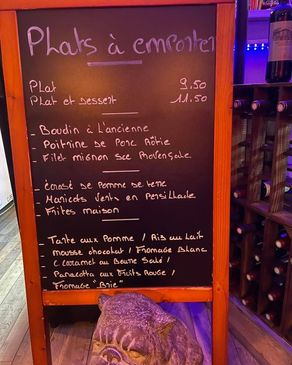 Plats à emporter
Plat 9.50
Plat et Dessert 11.50
- Boudin à l'ancienne
- Poitrine de Porc Rôtie
- Filet mignon Sce Provençale
- écrasé de Pomme de terre
- Haricots Verts en Persillade
- Frites maison
- Tarte aux Pomme / Ris au Lait
mousse chocolat / Fromage Blanc
( Caramel au Beurre Salé) /
Panacotta aux Fruits Rouge /
Fromage "Brie"